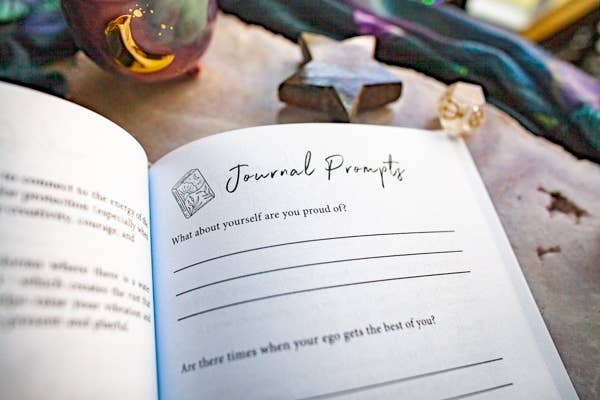 to connect to the energy of the
protection (especially when
creativity, courage, and
where there is a
which creates the
your vibration and
and playful.
Journal Prompts
What about yourself are you proud of?
Are there times when your ego gets the best of you?